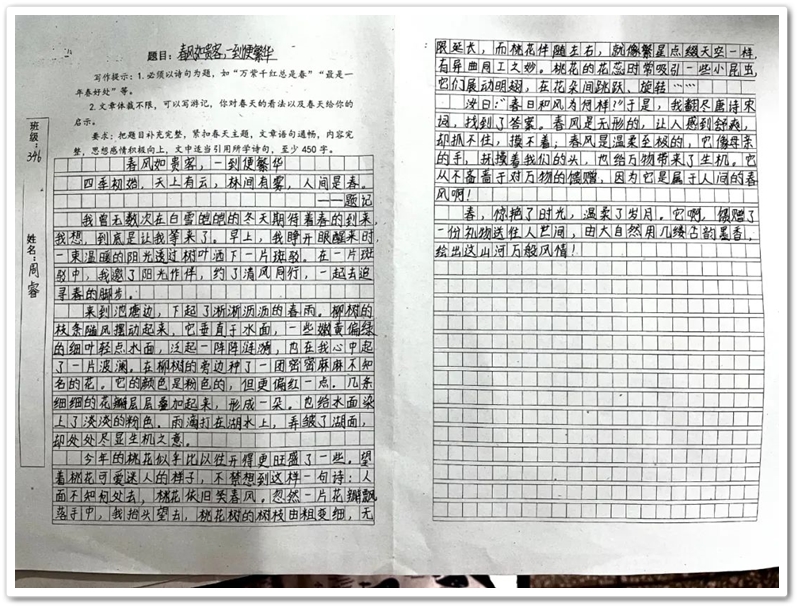 题目：春风如贵客，一到便繁华
写作提示：1. 必须以诗句为题，如“万紫千红总是春”“最是一
年春好处”等。
2. 文章体裁不限，可以写游记，你对春天的看法以及春天给你的
启示。
要求：把题目补充完整，紧扣春天主题，文章语句通畅，内容完
整，思想感情积极向上，文中连当引用所学诗句，至少 450 字。
班级：396
姓名：周睿
春风如贵客，一到便繁华
四季初始，天上有云，林间有雾，人间是春。
——题记
我曾无数次在白雪皑皑的冬天期待着春的到来，
我想，到底是让我等来了。早上，我睁开眼醒来时
一束温暖的阳光透过树叶洒下一片斑驳。在一片斑
驳中，我邀了阳光作伴，约了清风同行，一起去追
寻春的脚步。
来到池塘边，下起了淅淅沥沥的春雨。柳树的
枝条随风摆动起来，它垂直于水面，一些嫩黄偏绿
的细叶轻点水面，泛起一阵阵涟漪，也在我心中起
了一片波澜。在柳树的旁边种了一团密密麻麻不知
名的花。它的颜色是粉色的，但更偏红一点。几条
细细的花瓣层层叠加起来，形成一朵。也给水面染
上了淡淡的粉色。雨滴打在湖水上，弄皱了湖面，
却处处尽显生机之意。
今年的桃花似乎比以往开得更旺盛了一些。望
着桃花可爱迷人的样子，不禁想到这样一句诗：人
面不知何处去，桃花依旧笑春风。忽然一片花瓣飘
落手中，我抬头望去，桃花树的树枝由粗变细，无
限延长，而桃花伴随左右，就像繁星点缀天空一样，
有异曲同工之妙。桃花的花蕊时常吸引一些小昆虫，
它们展动明翅，在花朵间跳跃、旋转……
汝曰：“春日和风为何样？”于是，我翻尽唐诗宋
词，找到了答案。春风是无形的，让人感到舒爽，
却抓不住，摸不着；春风是温柔至极的，它像母亲
的手，抚摸着我们的头，也给万物带来了生机。它
从不吝啬于对万物的馈赠，因为它是属于人间的春
风啊！
春，惊艳了时光，温柔了岁月。它啊，馈赠了
一份礼物送往人世间，由大自然用几缕古韵墨香，
绘出这山河万般风情！